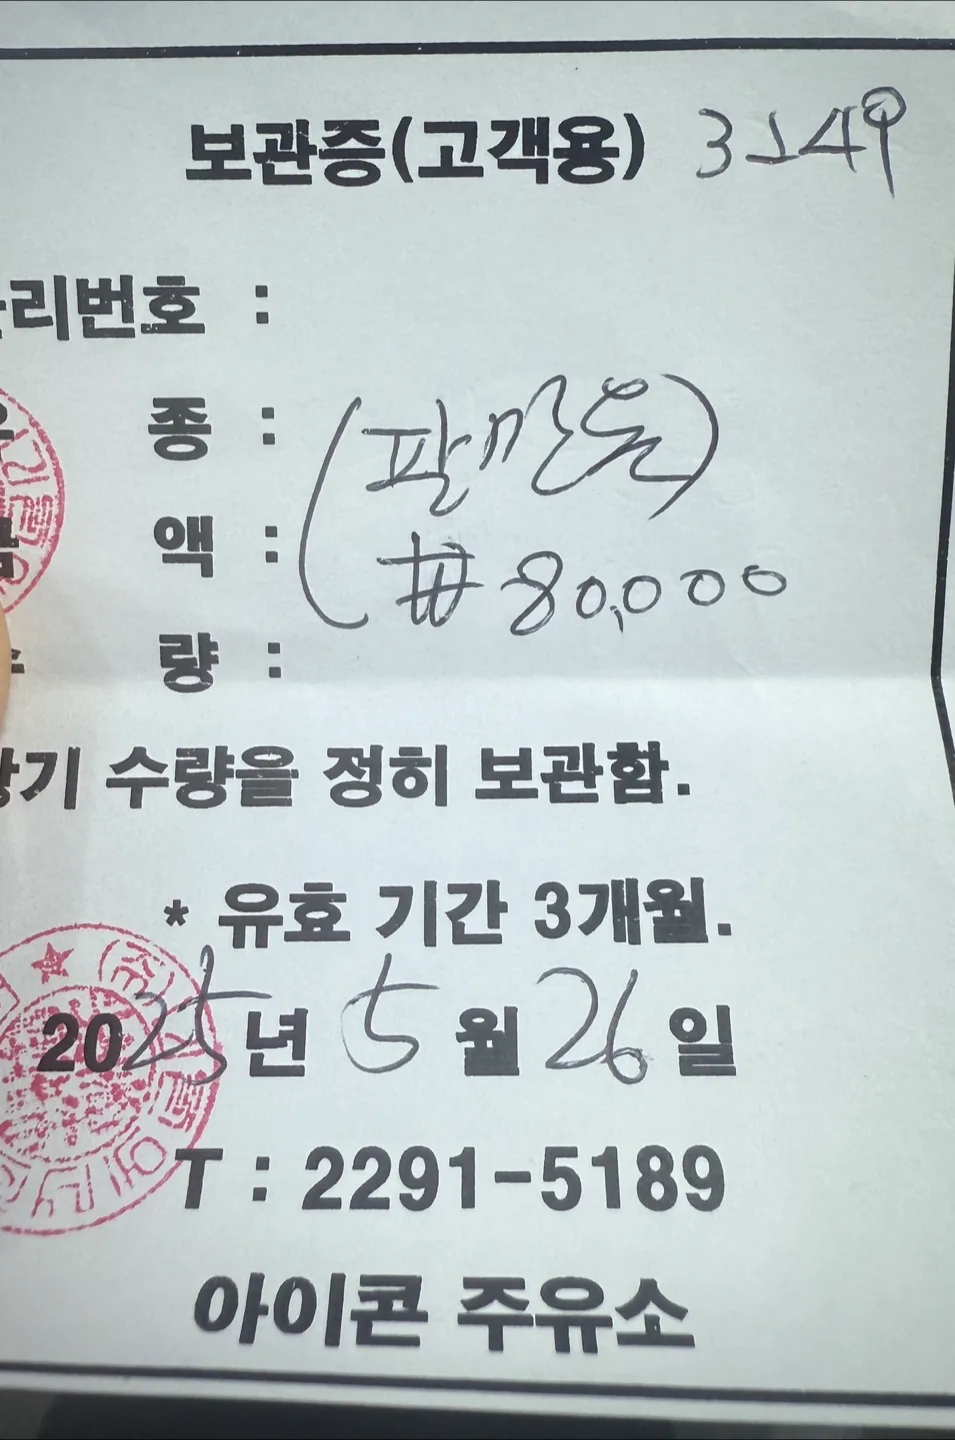 보관증(고객용) 3149
리번호 :
종 : (팔만원)
액 : (# 80,000
량 :
기 수량을 정히 보관함.
* 유효 기간 3개월.
2025년 5월 26일
T : 2291-5189
아이콘 주유소